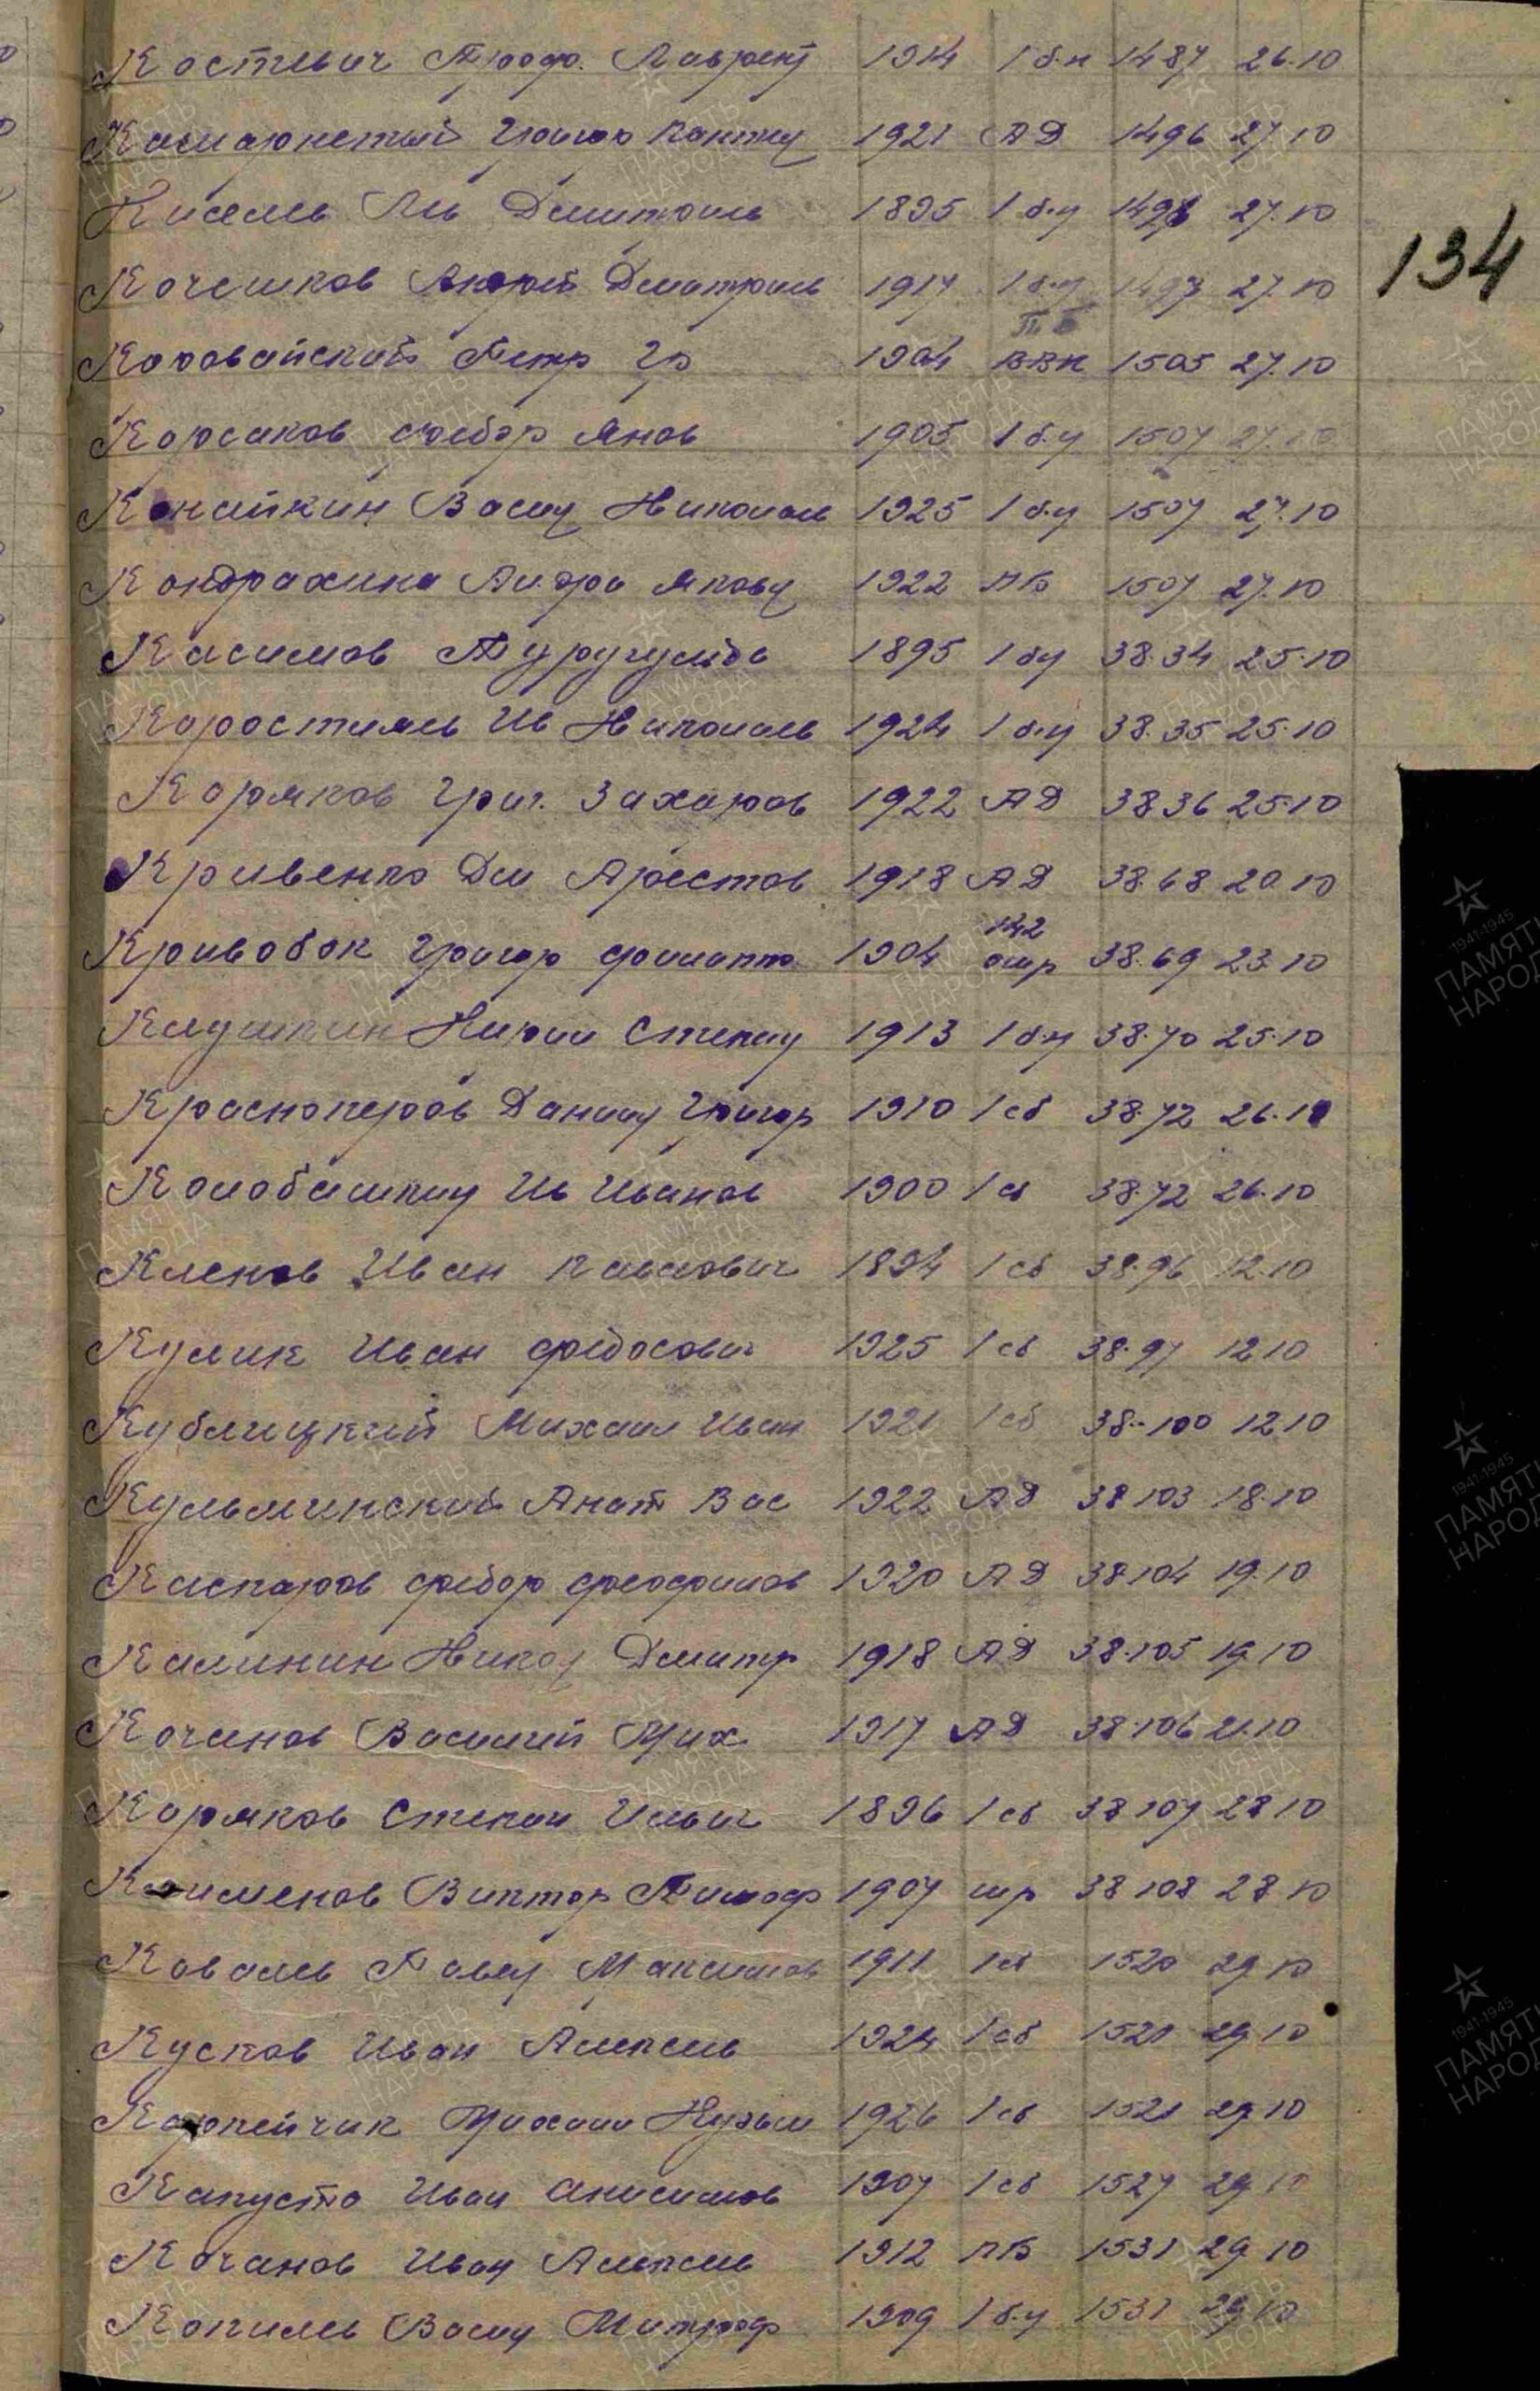 Костевич Троф. Лаврент 1914 1 б.н 1487 26.10
Григор 1921 АД 1496 27.10
Кисель Ль Дмитриев 1895 1 б.ч 1498 27.10
134
Кочешков Андрей Дмитриев 1917 1 б.ч 1497 27.10
Коровайский Петр Гр 1904 ВВК 1505 27.10
Корсаков Федор Янов 1905 1 б.ч 1507 27.10
Канайкин Васил Николаев 1925 1 б.ч 1507 27.10
Кондрахина Яковл 1922 ПБ 1507 27.10
Касимов 1895 1 бч 38.34 25.10
Коростилев Ив Николаев 1924 1 б.ч 38.35 25.10
Коряков Григ. Захаров 1922 АД 38 36 25.10
Кривенко Дм Арестов 1918 АД 38.68 20.10
142
Кривобок Григор 1904 ошр 38.69 23.10
Степан 1913 1 б.ч 38.70 25.10
Красноперов Данил Григор 1910 1 сб 38.72 26.10
Колобашкин Ив Иванов 1900 1 сб 38.72 26.10
Кленов Иван Павлович 1894 1 сб 38.96 12.10
Кулик Иван Федосович 1925 1 сб 38.97 12.10
Кублицкий Михаил Иван 1921 1 сб 38-100 12.10
Кульминский Анат Вас 1922 АД 38 103 18.10
Каспаров Федор Феофилов 1920 АД 38.104 19.10
Калинин Никол Дмитр 1918 АД 38.105 19.10
Кочанов Василий Мих 1917 АД 38.106 21.10
Коряков Степан Ильич 1896 1 сб 38 107 28.10
Клименов Виктор Тимоф 1907 шр 38 108 28.10
Коваль Павел Максимов 1911 1 сб 1520 29.10
Кусков Иван Алексеев 1924 1 сб 1521 29.10
Карпейчик Михаил Кузьм 1926 1 сб 1521 29.10
Капуста Иван Анисимов 1907 1 сб 1527 29.10
Кочанов Иван Алексеев 1912 ПБ 1531 29.10
Копилев Васил Митроф 1909 1 б.ч 1531 29.10